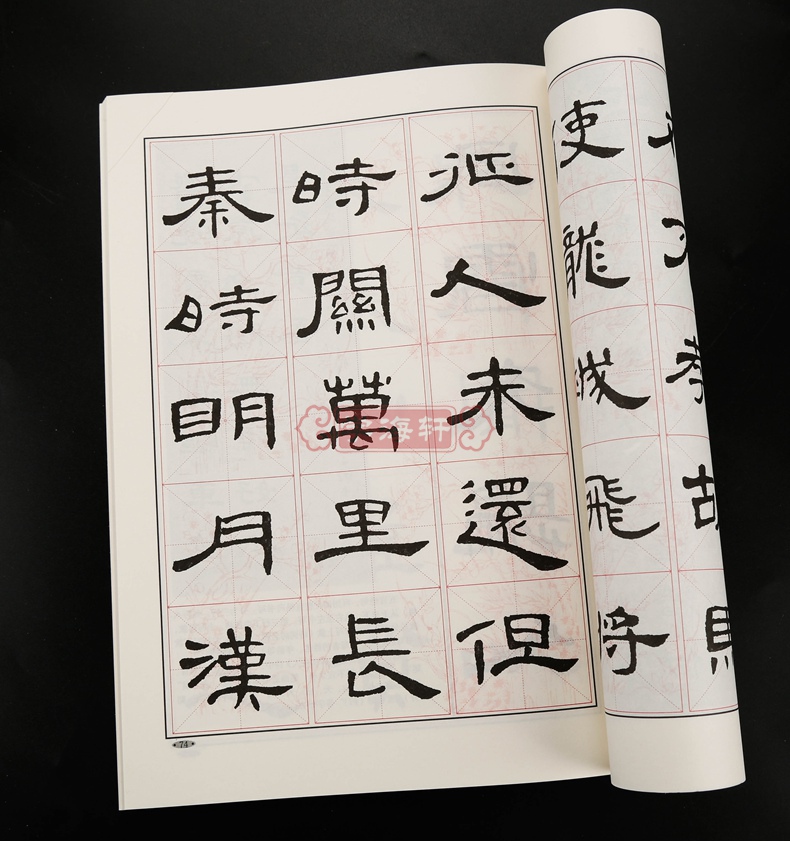 秦時眀月漢
時關萬里長
征人未還但
使龍城飛將
74
海轩